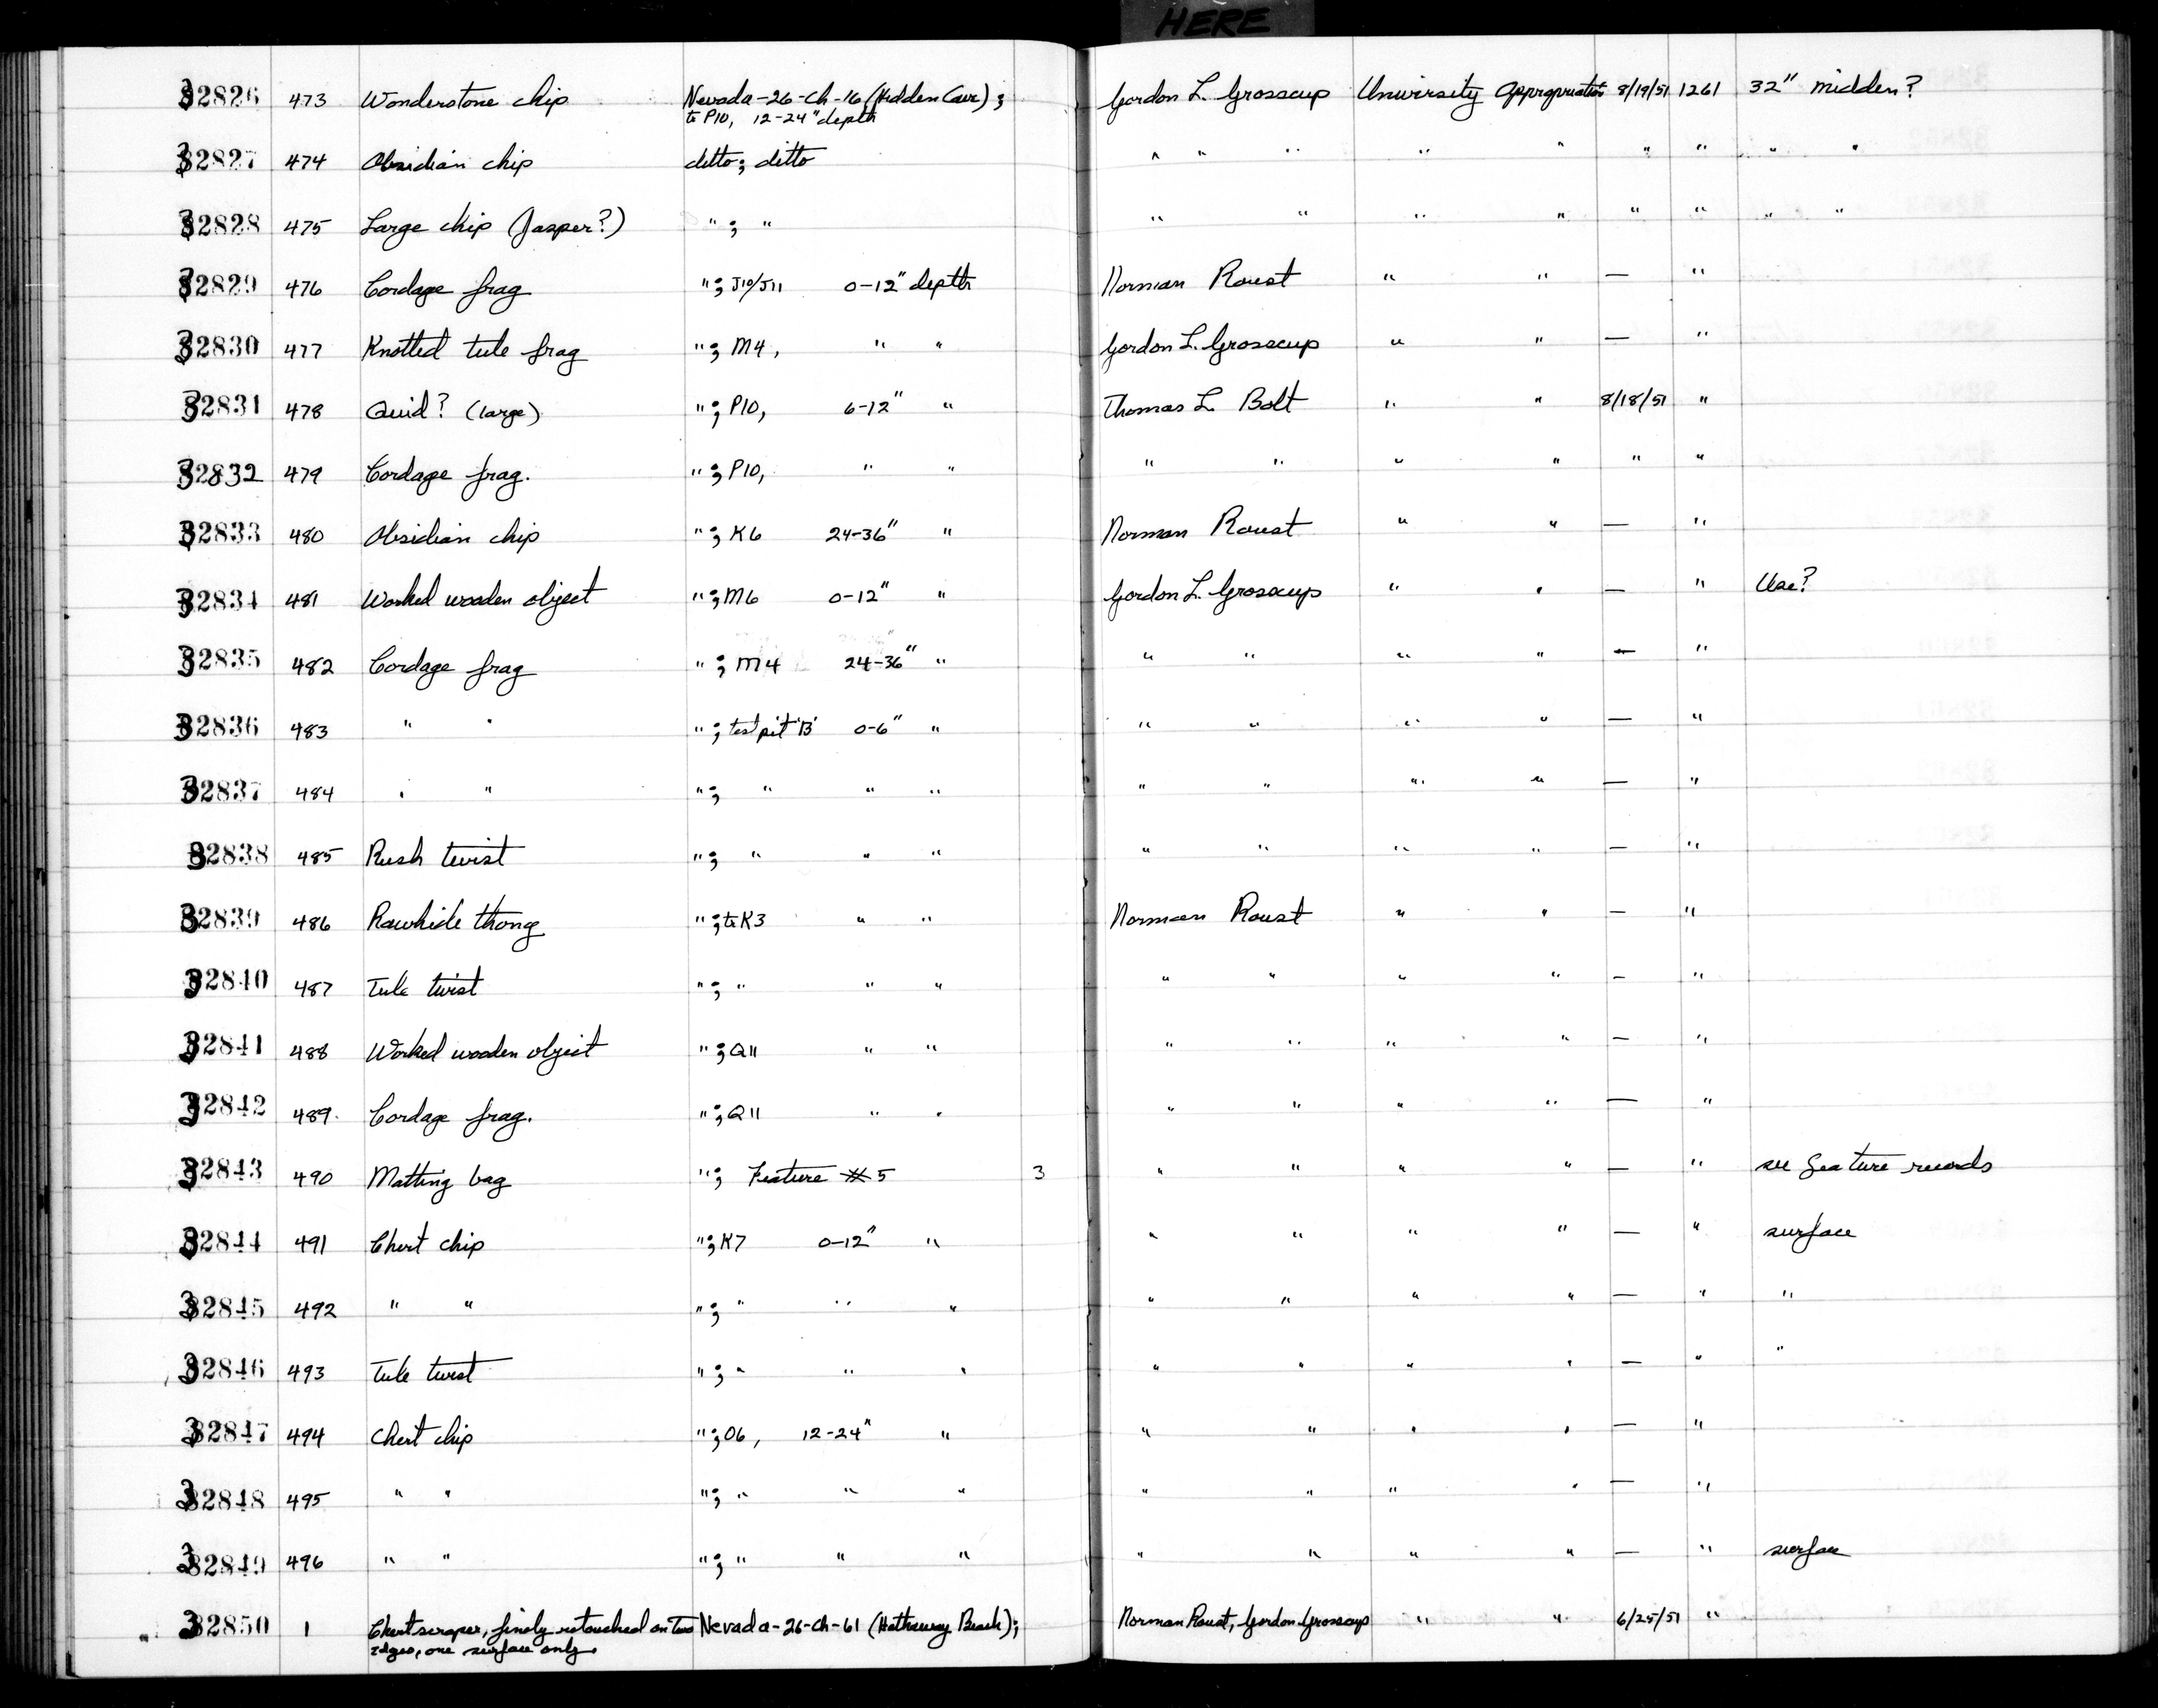 HERE
32826 473 Wonderstone chip Nevada-26-Ch-16 (Hidden Cave); Gordon L. Grosscup University Appropriation 8/19/51 1261 32" midden?
to P10, 12-24" depth
32827 474 Obsidian chip ditto; ditto " " " " " " " " "
32828 475 Large chip (Jasper?) "; " " " " " " " " "
32829 476 Cordage frag "; J10/J11 0-12" depth Norman Roust " " — "
32830 477 Knotted tule frag "; M4, " " Gordon L. Grosscup " " — "
32831 478 Quid? (large) "; P10, 6-12" " Thomas L. Bolt " " 8/18/51 "
32832 479 Cordage frag. "; P10, " " " " " " " "
32833 480 Obsidian chip "; K6 24-36" " Norman Roust " " — "
32834 481 Worked wooden object "; M6 0-12" " Gordon L. Grosscup " " — " Use?
32835 482 Cordage frag "; M4 24-36" " " " " " — "
32836 483 " " "; test pit 'B' 0-6" " " " " " — "
32837 484 " " "; " " " " " " " — "
32838 485 Rush twist "; " " " " " " " — "
32839 486 Rawhide thong "; to K3 " " Norman Roust " " — "
32840 487 Tule twist "; " " " " " " " — "
32841 488 Worked wooden object "; Q11 " " " " " " — "
32842 489. Cordage frag. "; Q11 " " " " " " — "
32843 490 Matting bag "; Feature #5 3 " " " " — " see feature records
32844 491 Chert chip "; K7 0-12" " " " " " — " surface
32845 492 " " "; " " " " " " " — " "
32846 493 Tule twist "; " " " " " " " — " "
32847 494 Chert chip "; O6, 12-24" " " " " " — "
32848 495 " " "; " " " " " " " — "
32849 496 " " "; " " " " " " " — " surface
32850 1 Chert scraper, finely retouched on two Nevada-26-Ch-61 (Hathaway Beach); Norman Roust, Gordon Grosscup " " 6/25/51 "
edges, one surface only.